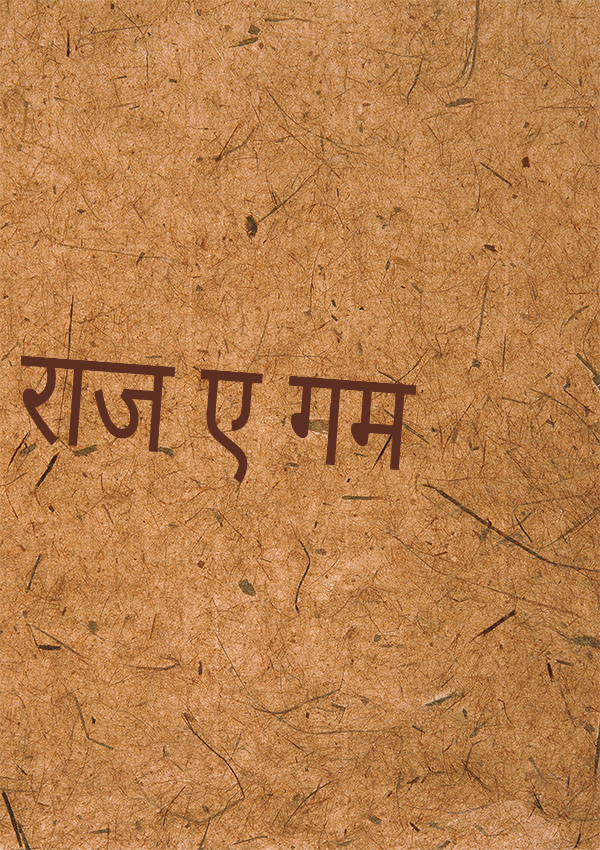 राज ए गम